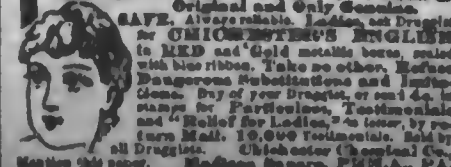 Original and Only Genuine.
SAFE. Always reliable. Ladies, ask Druggist
for CHICHESTER'S ENGLISH
in RED and Gold metallic boxes, sealed
with blue ribbon. Take no other. Refuse
Dangerous Substitutions and Imita-
tions. Buy of your Druggist, or send 4c. in
stamps for Particulars, Testimonials
and "Relief for Ladies," in letter, by re-
turn Mail. 10,000 Testimonials. Sold by
all Druggists. Chichester Chemical Co.,
Mention this paper. Madison Square,